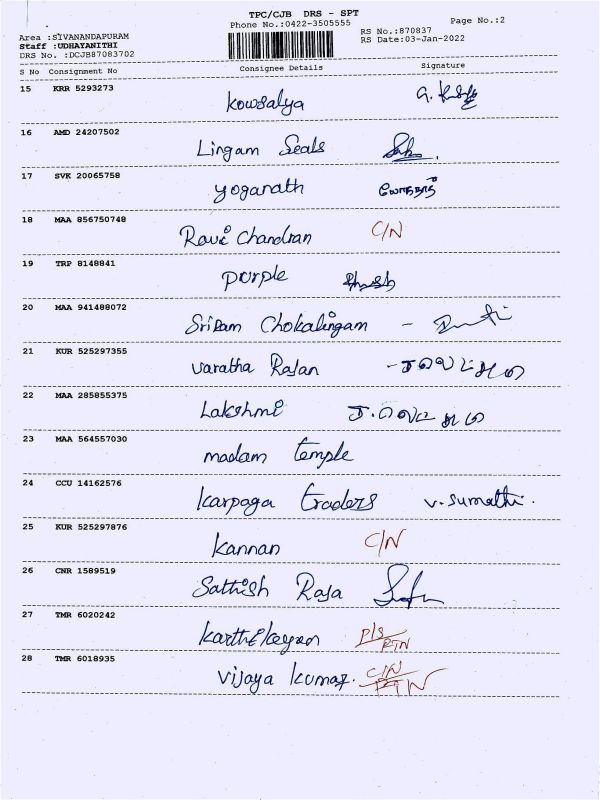 TPC/CJB DRS - SPT
Page No.:2
Phone No.:0422-3505555
RS No.:870837
RS Date:03-Jan-2022
Area :SIVANANDAPURAM
Staff :UDHAYANITHI
DRS No. :DCJB87083702
S No Consignment No Consignee Details Signature
15 KRR 5293273 Kowsalya
16 AMD 24207502 Lingam Seals
17 SVK 20065758 yoganath யோகநாத்
18 MAA 856750748 Ravi Chandran C/N
19 TRP 8148841 purple
20 MAA 941488072 Sriram Chokalingam -
21 KUR 525297355 varatha Rajan -
22 MAA 285855375 Lakshmi
23 MAA 564557030 madam temple
24 CCU 14162576 Karpaga traders v. sumathi.
25 KUR 525297876 Kannan C/N
26 CNR 1589519 Sathish Raja
27 TMR 6020242 Karthikeyan D/S RTN
28 TMR 6018935 vijaya kumar. C/N RTN